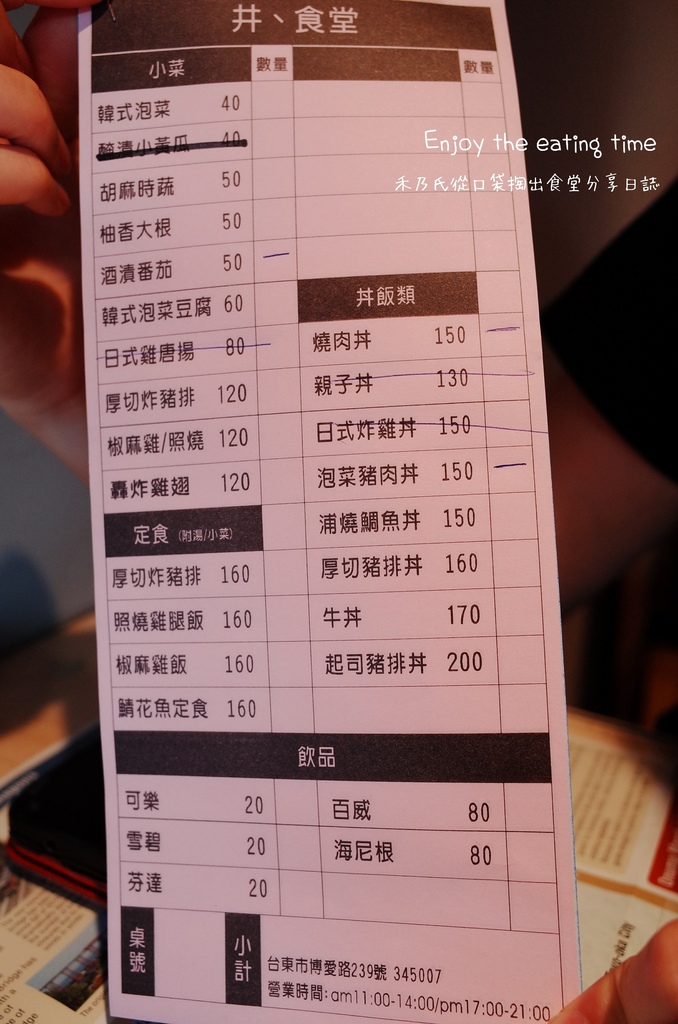 丼、食堂
小菜 數量 數量
韓式泡菜 40
醃漬小黃瓜 40
胡麻時蔬 50
柚香大根 50
酒漬番茄 50
韓式泡菜豆腐 60
日式雞唐揚 80
厚切炸豬排 120
椒麻雞/照燒 120
轟炸雞翅 120
定食 (附湯/小菜)
厚切炸豬排 160
照燒雞腿飯 160
椒麻雞飯 160
鯖花魚定食 160
丼飯類
燒肉丼 150
親子丼 130
日式炸雞丼 150
泡菜豬肉丼 150
浦燒鯛魚丼 150
厚切豬排丼 160
牛丼 170
起司豬排丼 200
飲品
可樂 20
雪碧 20
芬達 20
百威 80
海尼根 80
桌號
小計
台東市博愛路239號 345007
營業時間:am11:00-14:00/pm17:00-21:00
Enjoy the eating time
禾乃氏從口袋掏出食堂分享日誌